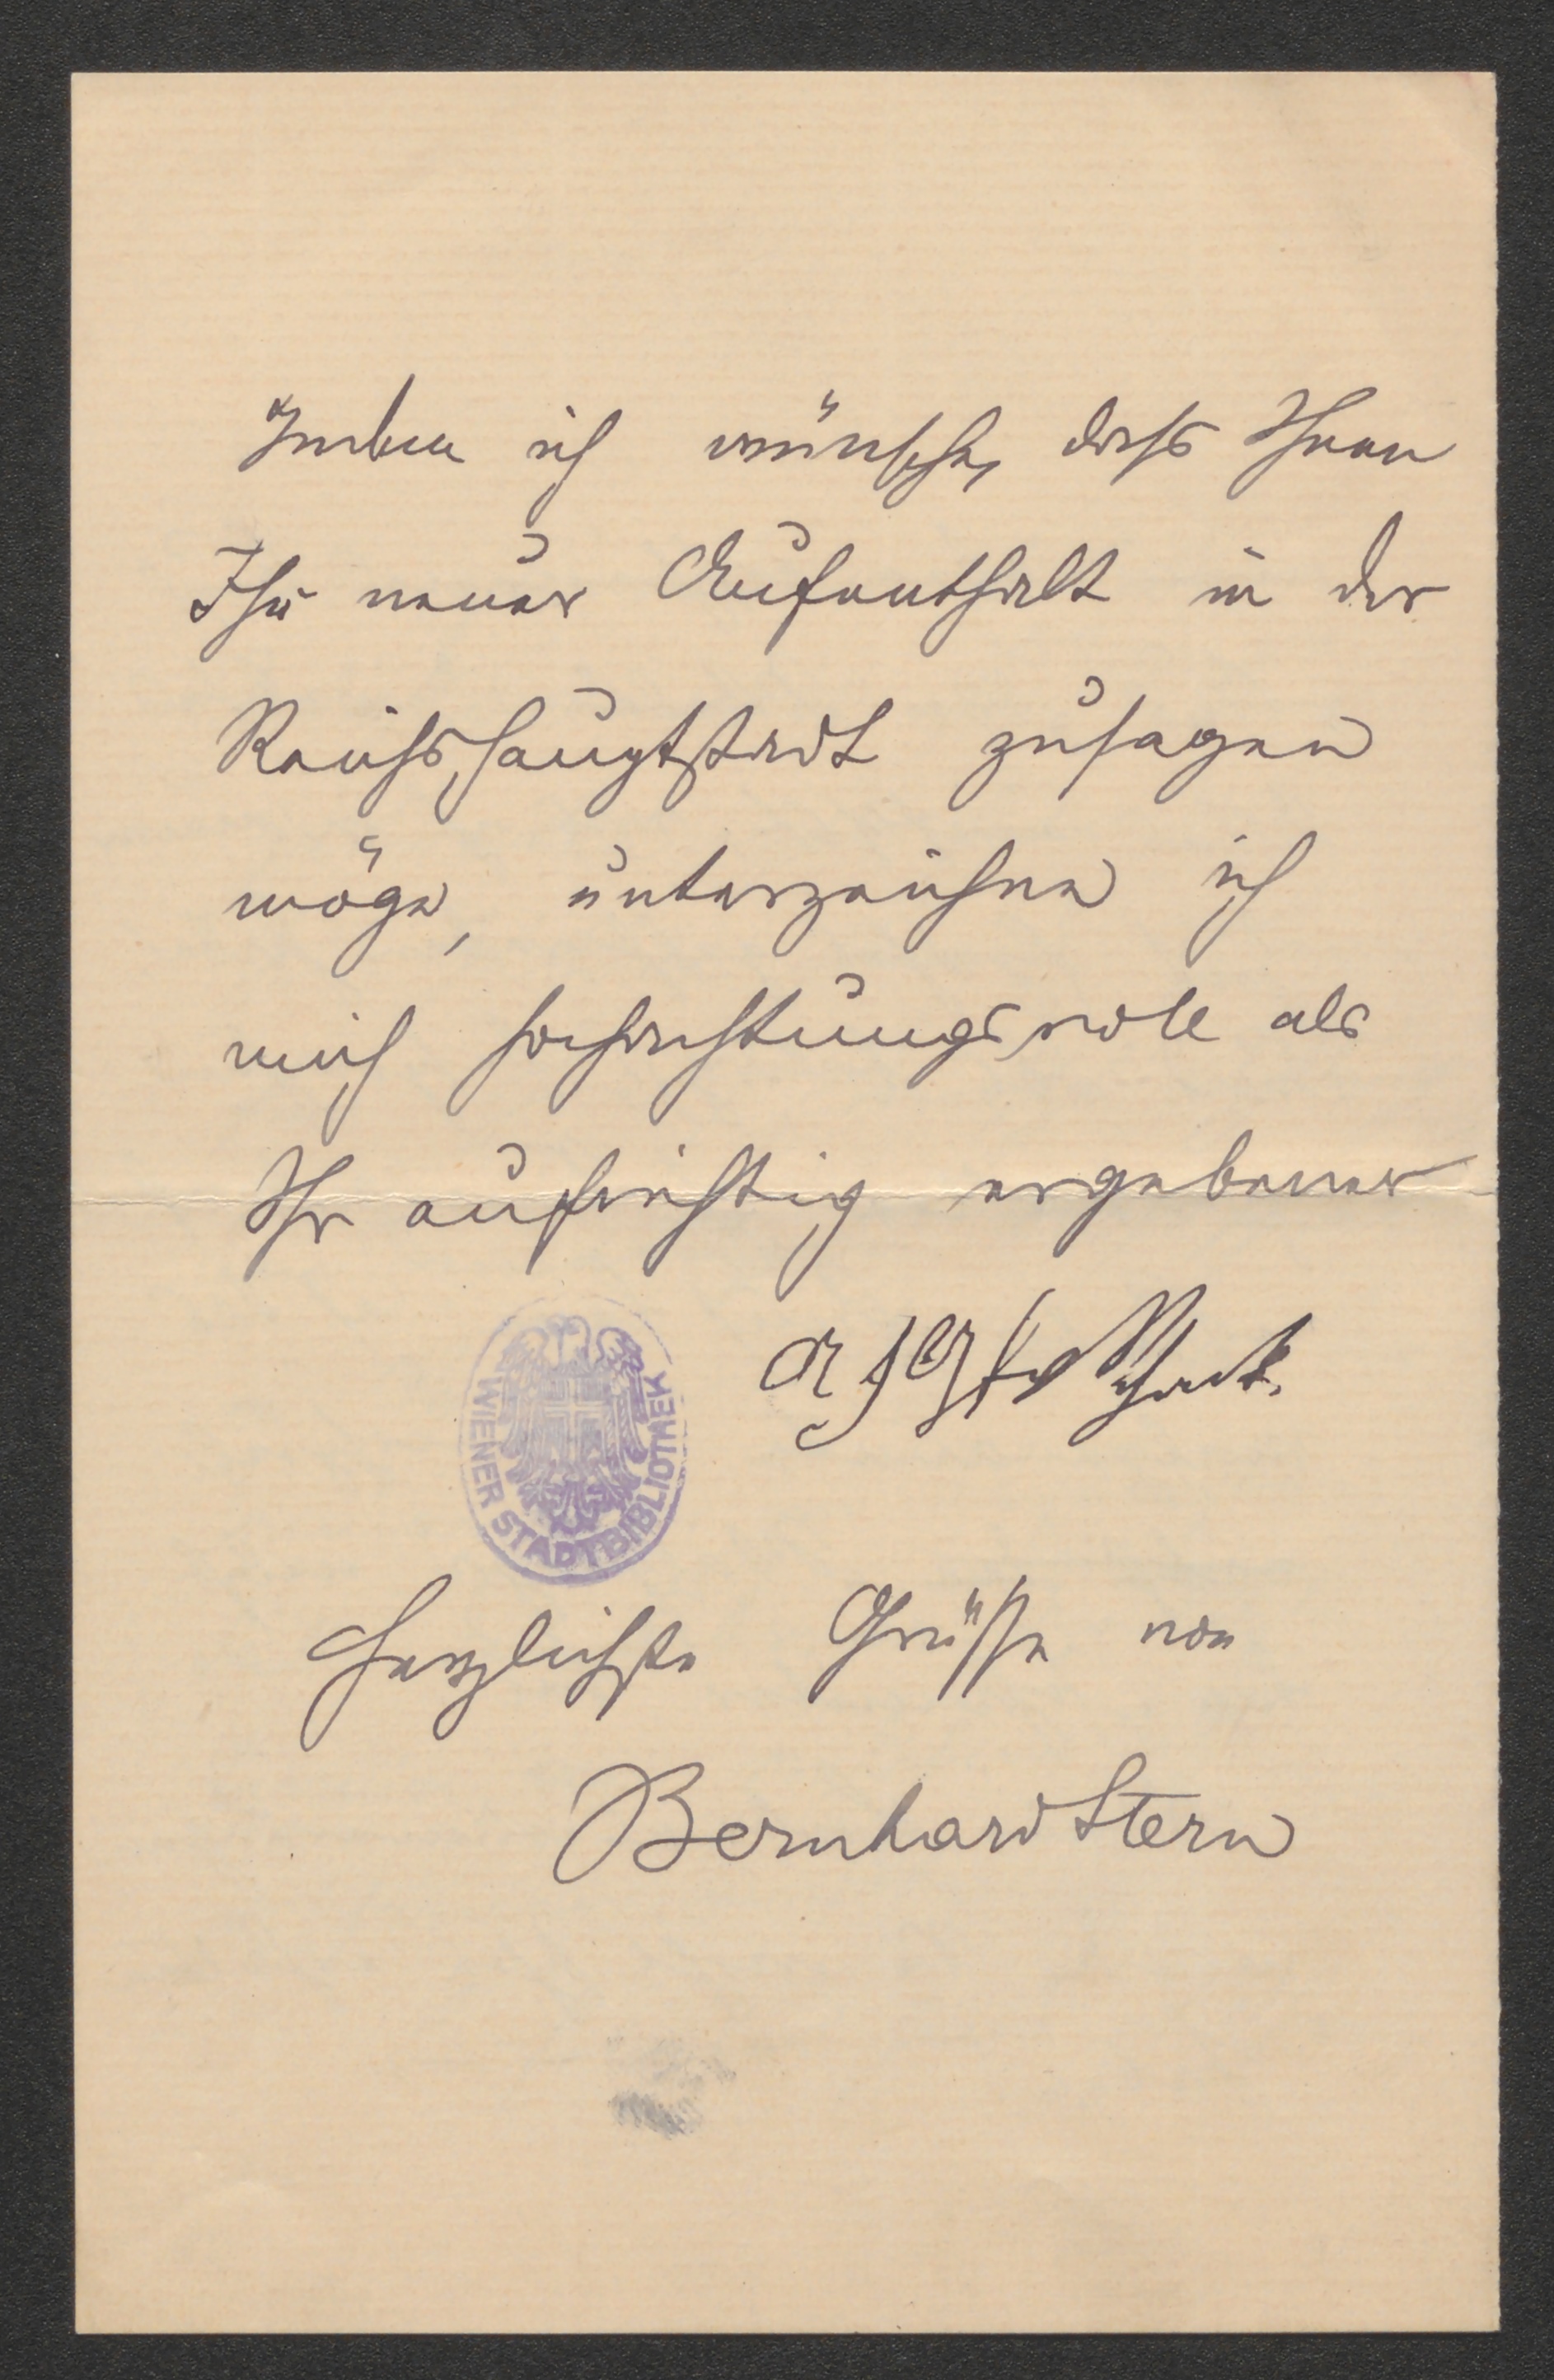 Indem ich wünsche, dass Ihnen
Ihr neuer Aufenthalt in der
Reichshauptstadt zusagen
möge, unterzeichne ich
mich hochachtungsvoll als
Ihr aufrichtig ergebener
A F Gf v Schack.
WIENER STADTBIBLIOTHEK
Herzlichste Grüsse von
Bernhard Stern